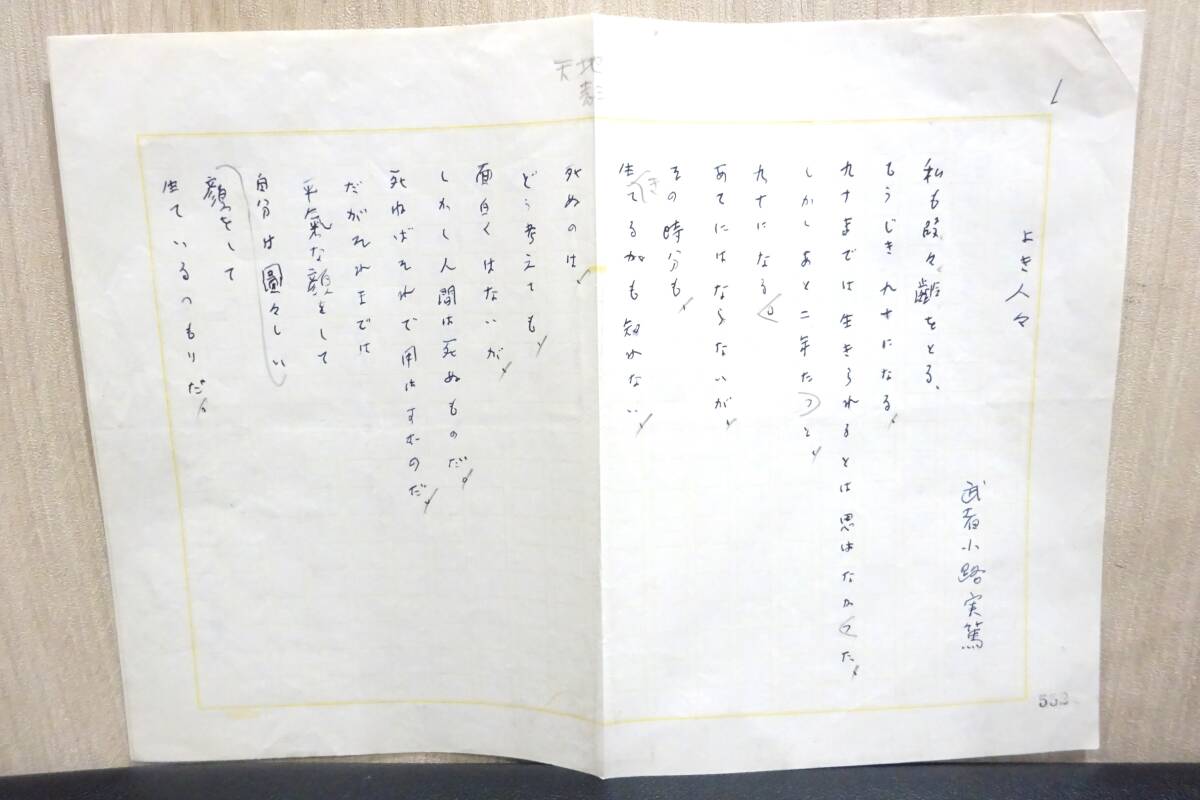 1
天地
よき人々
武者小路実篤
私も段々齢をとる、
もうじき九十になる、
九十まで は生きられるとは思はなかつた、
しかしあと二年たつと、
九十になる
あてにはならないが、
その時分も、
生きてるかも知れない、
死ぬのは、
どう考えても、
面白くはないが、
しかし人間は死ぬものだ、
死ねばそれで用はすむのだ、
だがそれまでは
平氣な顔をして
自分は圖々しい
顔をして
生ているつもりだ、
553